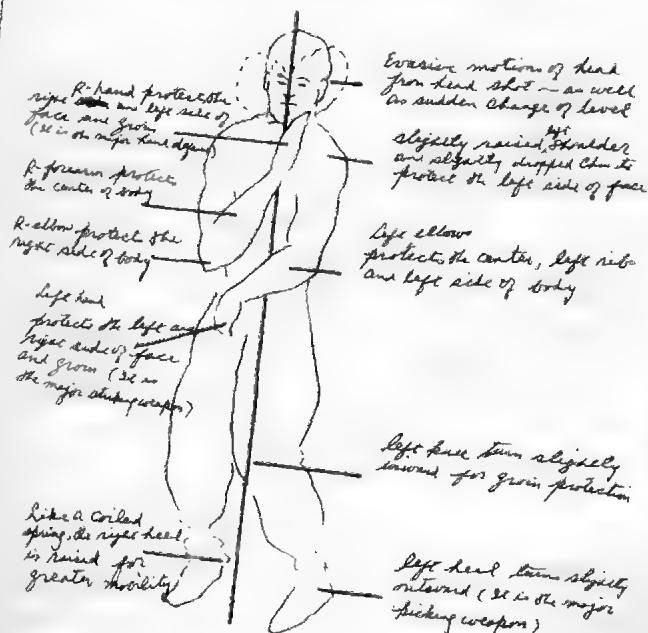 R-hand protect the
right and left side of
face and groin
(It is the major hand defense)
R-forearm protects
the center of body
R-elbow protect the
right side of body
Left hand
protects the left and
right side of face
and groin (It is
the major striking weapon)
Like a coiled
spring, the right heel
is raised for
greater mobility
Evasive motions of head
from head shot — as well
as sudden change of level
slightly raised left shoulder
and slightly dropped chin to
protect the left side of face
Left elbow
protects the center, left ribs
and left side of body
left knee turn slightly
inward for groin protection
left heel turns slightly
outward (It is the major
kicking weapon)